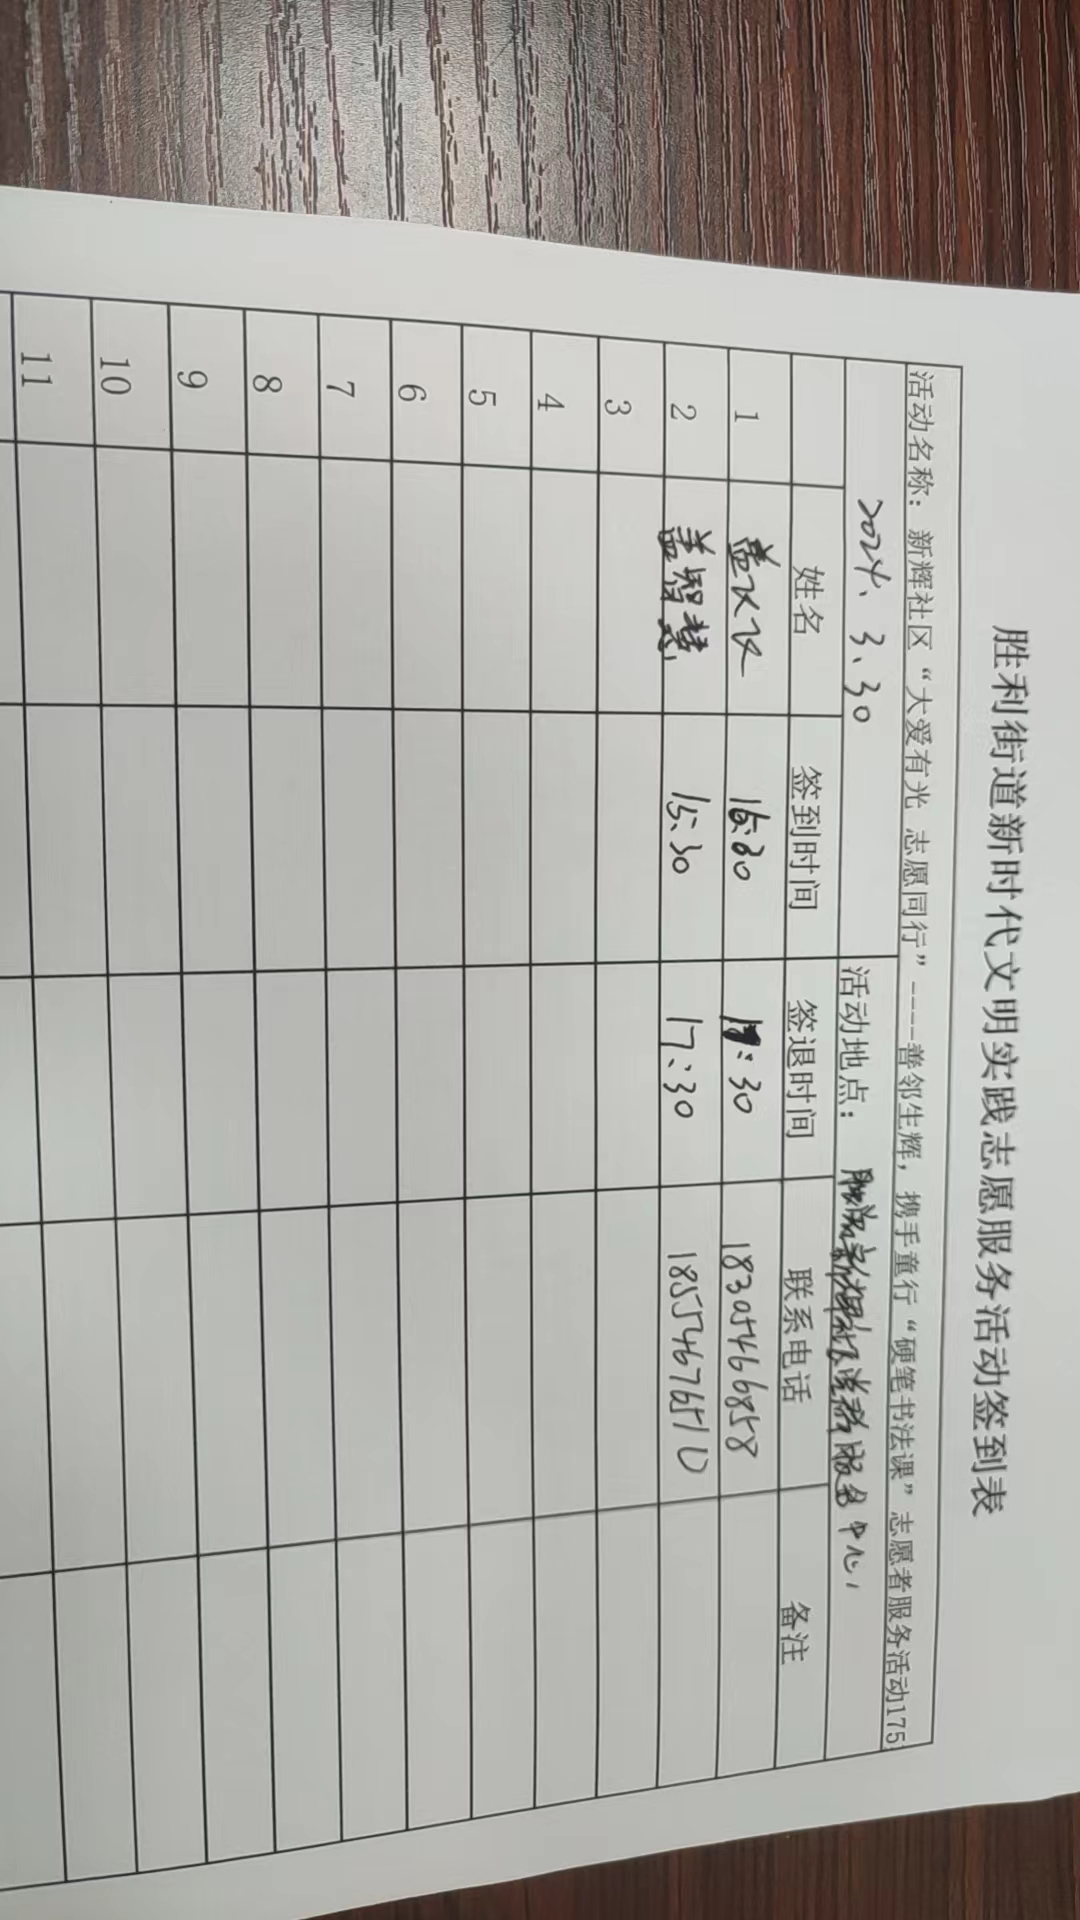 胜利街道新时代文明实践志愿服务活动签到表
活动名称：新辉社区“大爱有光 志愿同行”----善邻生辉，携手童行“硬笔书法课”志愿者服务活动175
2024、3、30 活动地点： 新辉社区党群服务中心
姓名 签到时间 签退时间 联系电话 备注
1 :30 18305466858
2 盖智慧 15:30 17:30 18554676510
3
4
5
6
7
8
9
10
11